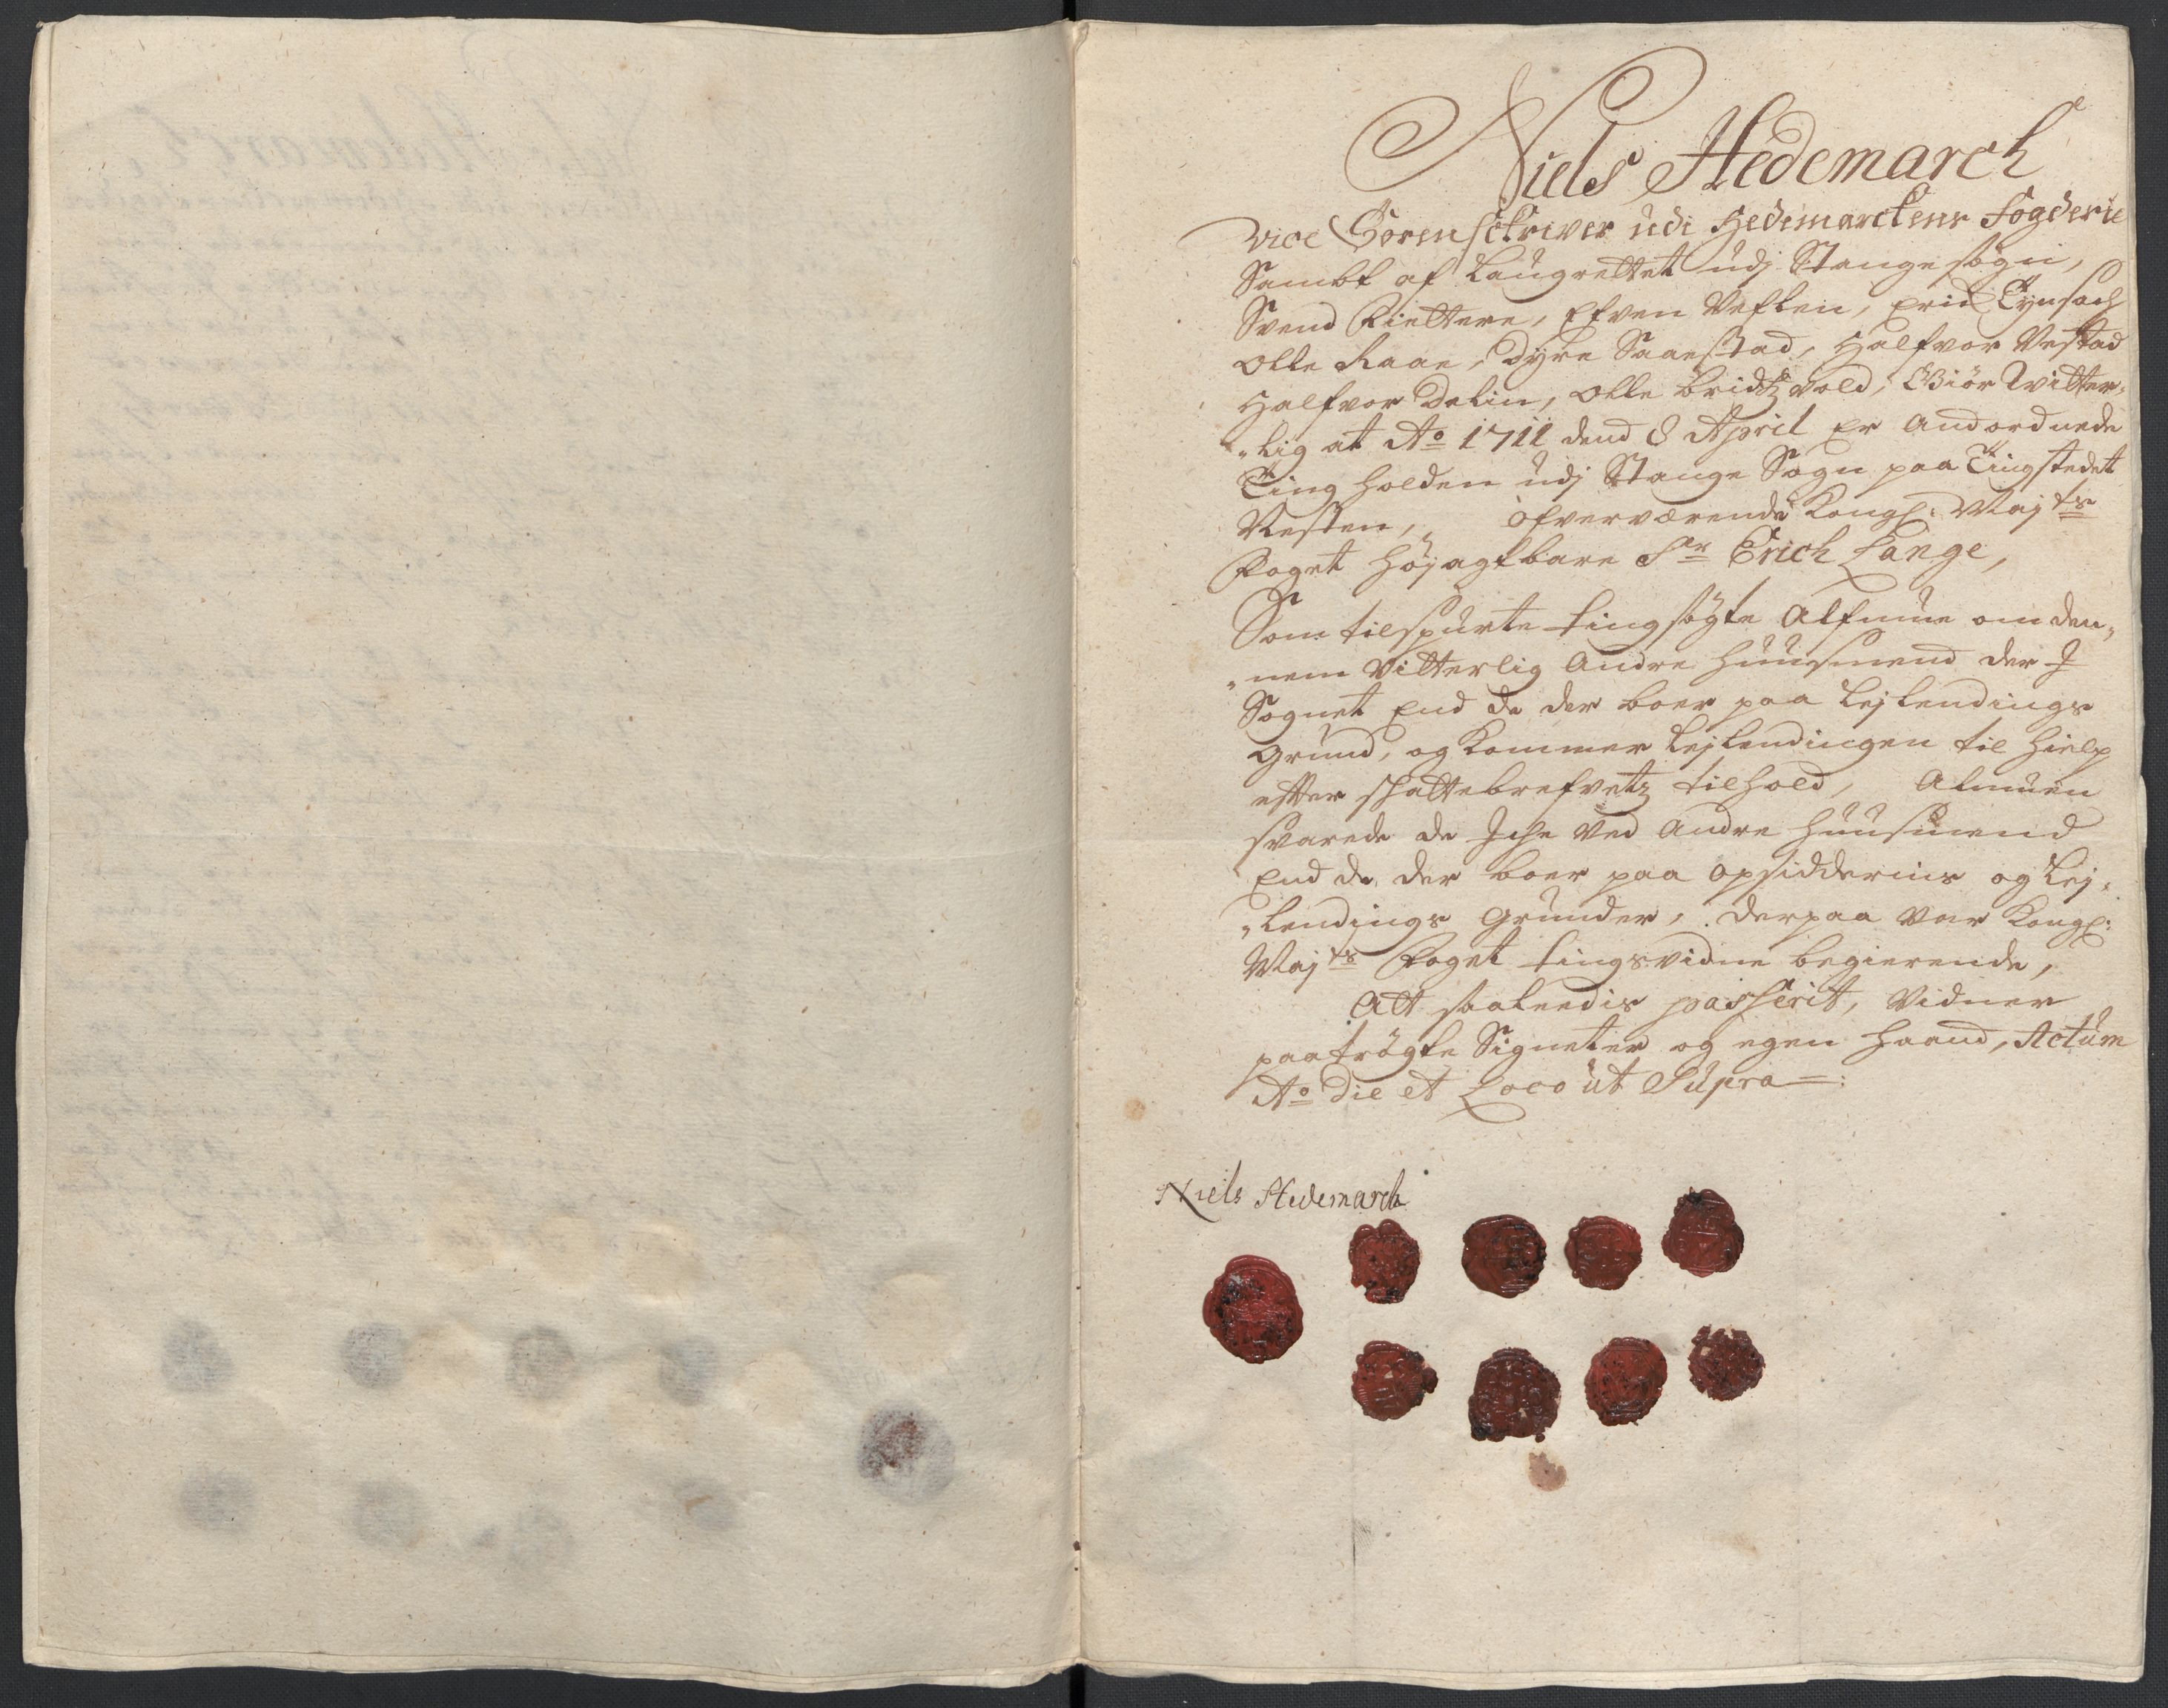 Niels Hedemarch
vice Sorenschriver udi Hedemarckens Fogderie
Sambt af Laugrettet udj Stange sogn,
Svend Kiettere, Efven Neflen, Erich Tynsach
Olle Raae, Dyre Saastad, Halfvor Nestad
Halfvor Delin, Olle Bridtzvold, Giør Witter-
„lig at Ao 1711 dend 8 April er Andordnede
Ting holden udj Stange Sogn paa Tingstedet
Nesten, ofverværende Kongl: Majts
Foget Høyagtbare Sr Erich Lange,
Som tilspurte tingsøgte Alfmue om den„
„nem vitterlig Andre huusmend der J
Sognet End de der boer paa Lejlendings
Grund, og kommer Lejlendingen til hielp
effter skattebrefvetz tilhold, Almuen
svarede de Jche ved Andre huusmend
End de der boer paa opsidderins og Lej„
„lendings Grunder, derpaa var Kongl:
Majts Foget tingsvidne begierende,
Att saaleedis passerit, vidner
paatrøgte Signeter og egen haand, Actum
Ao Die et Loco ut Supra =:
Niels Hedemarch